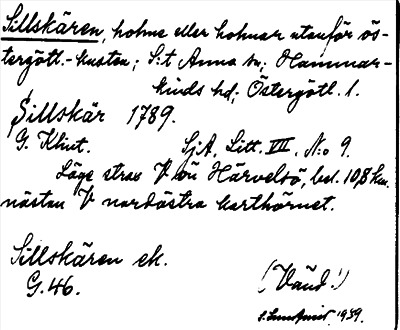 Sillskären, holme eller holmar utanför ös-
tergötl.-kusten; S:t Anna sn; Hammar-
kinds hd; Östergötl. l.
Sillskär 1789.
G. Klint. SjA, Litt. VII. N:o 9.
Läge strax V ön Härvelsö, bel. 10,8 km.
nästan V nordöstra karthörnet.
Sillskären ek.
G.46. (Vänd!)
1939.